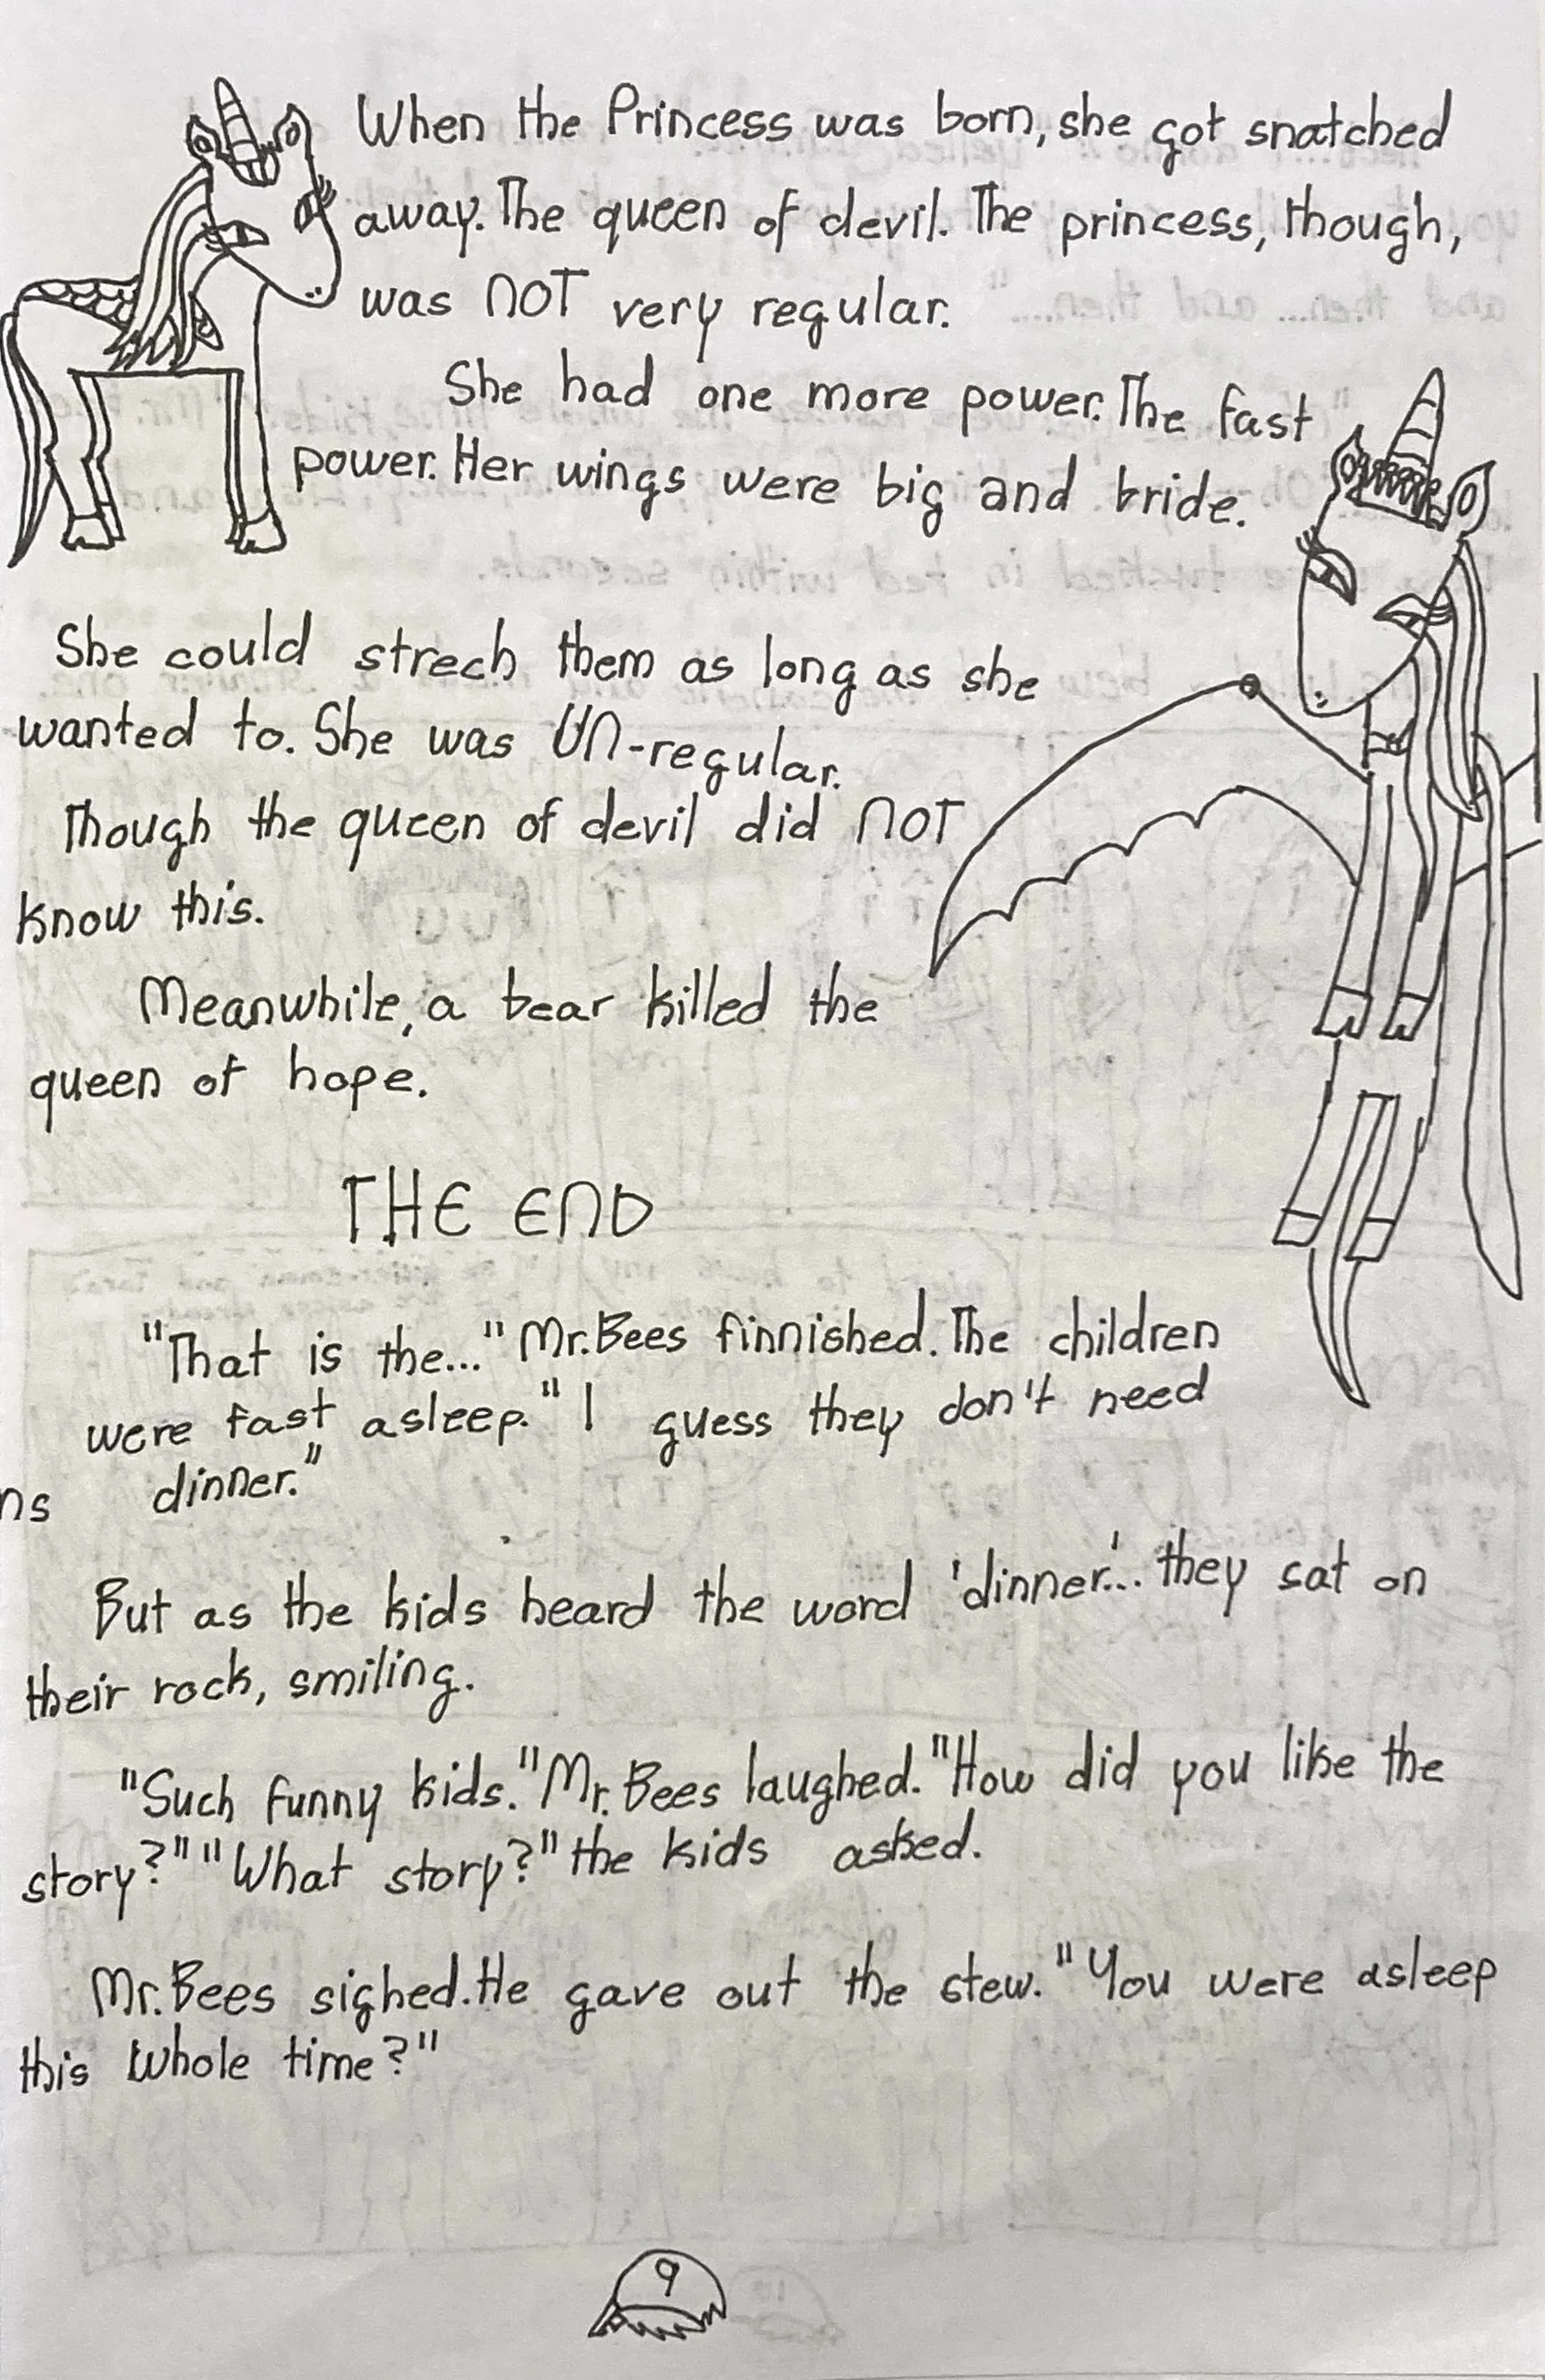 When the Princess was born, she got snatched
away. The queen of devil. The princess, though,
was NOT very regular.
She had one more power. The fast
power. Her wings were big and bride.
She could strech them as long as she
wanted to. She was UN-regular.
Though the queen of devil did NOT
know this.
Meanwhile, a bear killed the
queen of hope.
THE END
"That is the..." Mr. Bees finnished. The children
were fast asleep. "I guess they don't need
dinner."
ns
But as the kids heard the word 'dinner'... they sat on
their rock, smiling.
"Such funny kids." Mr. Bees laughed. "How did you like the
story?" "What story?" the kids asked.
Mr. Bees sighed. He gave out the stew. "You were asleep
this whole time?"
9